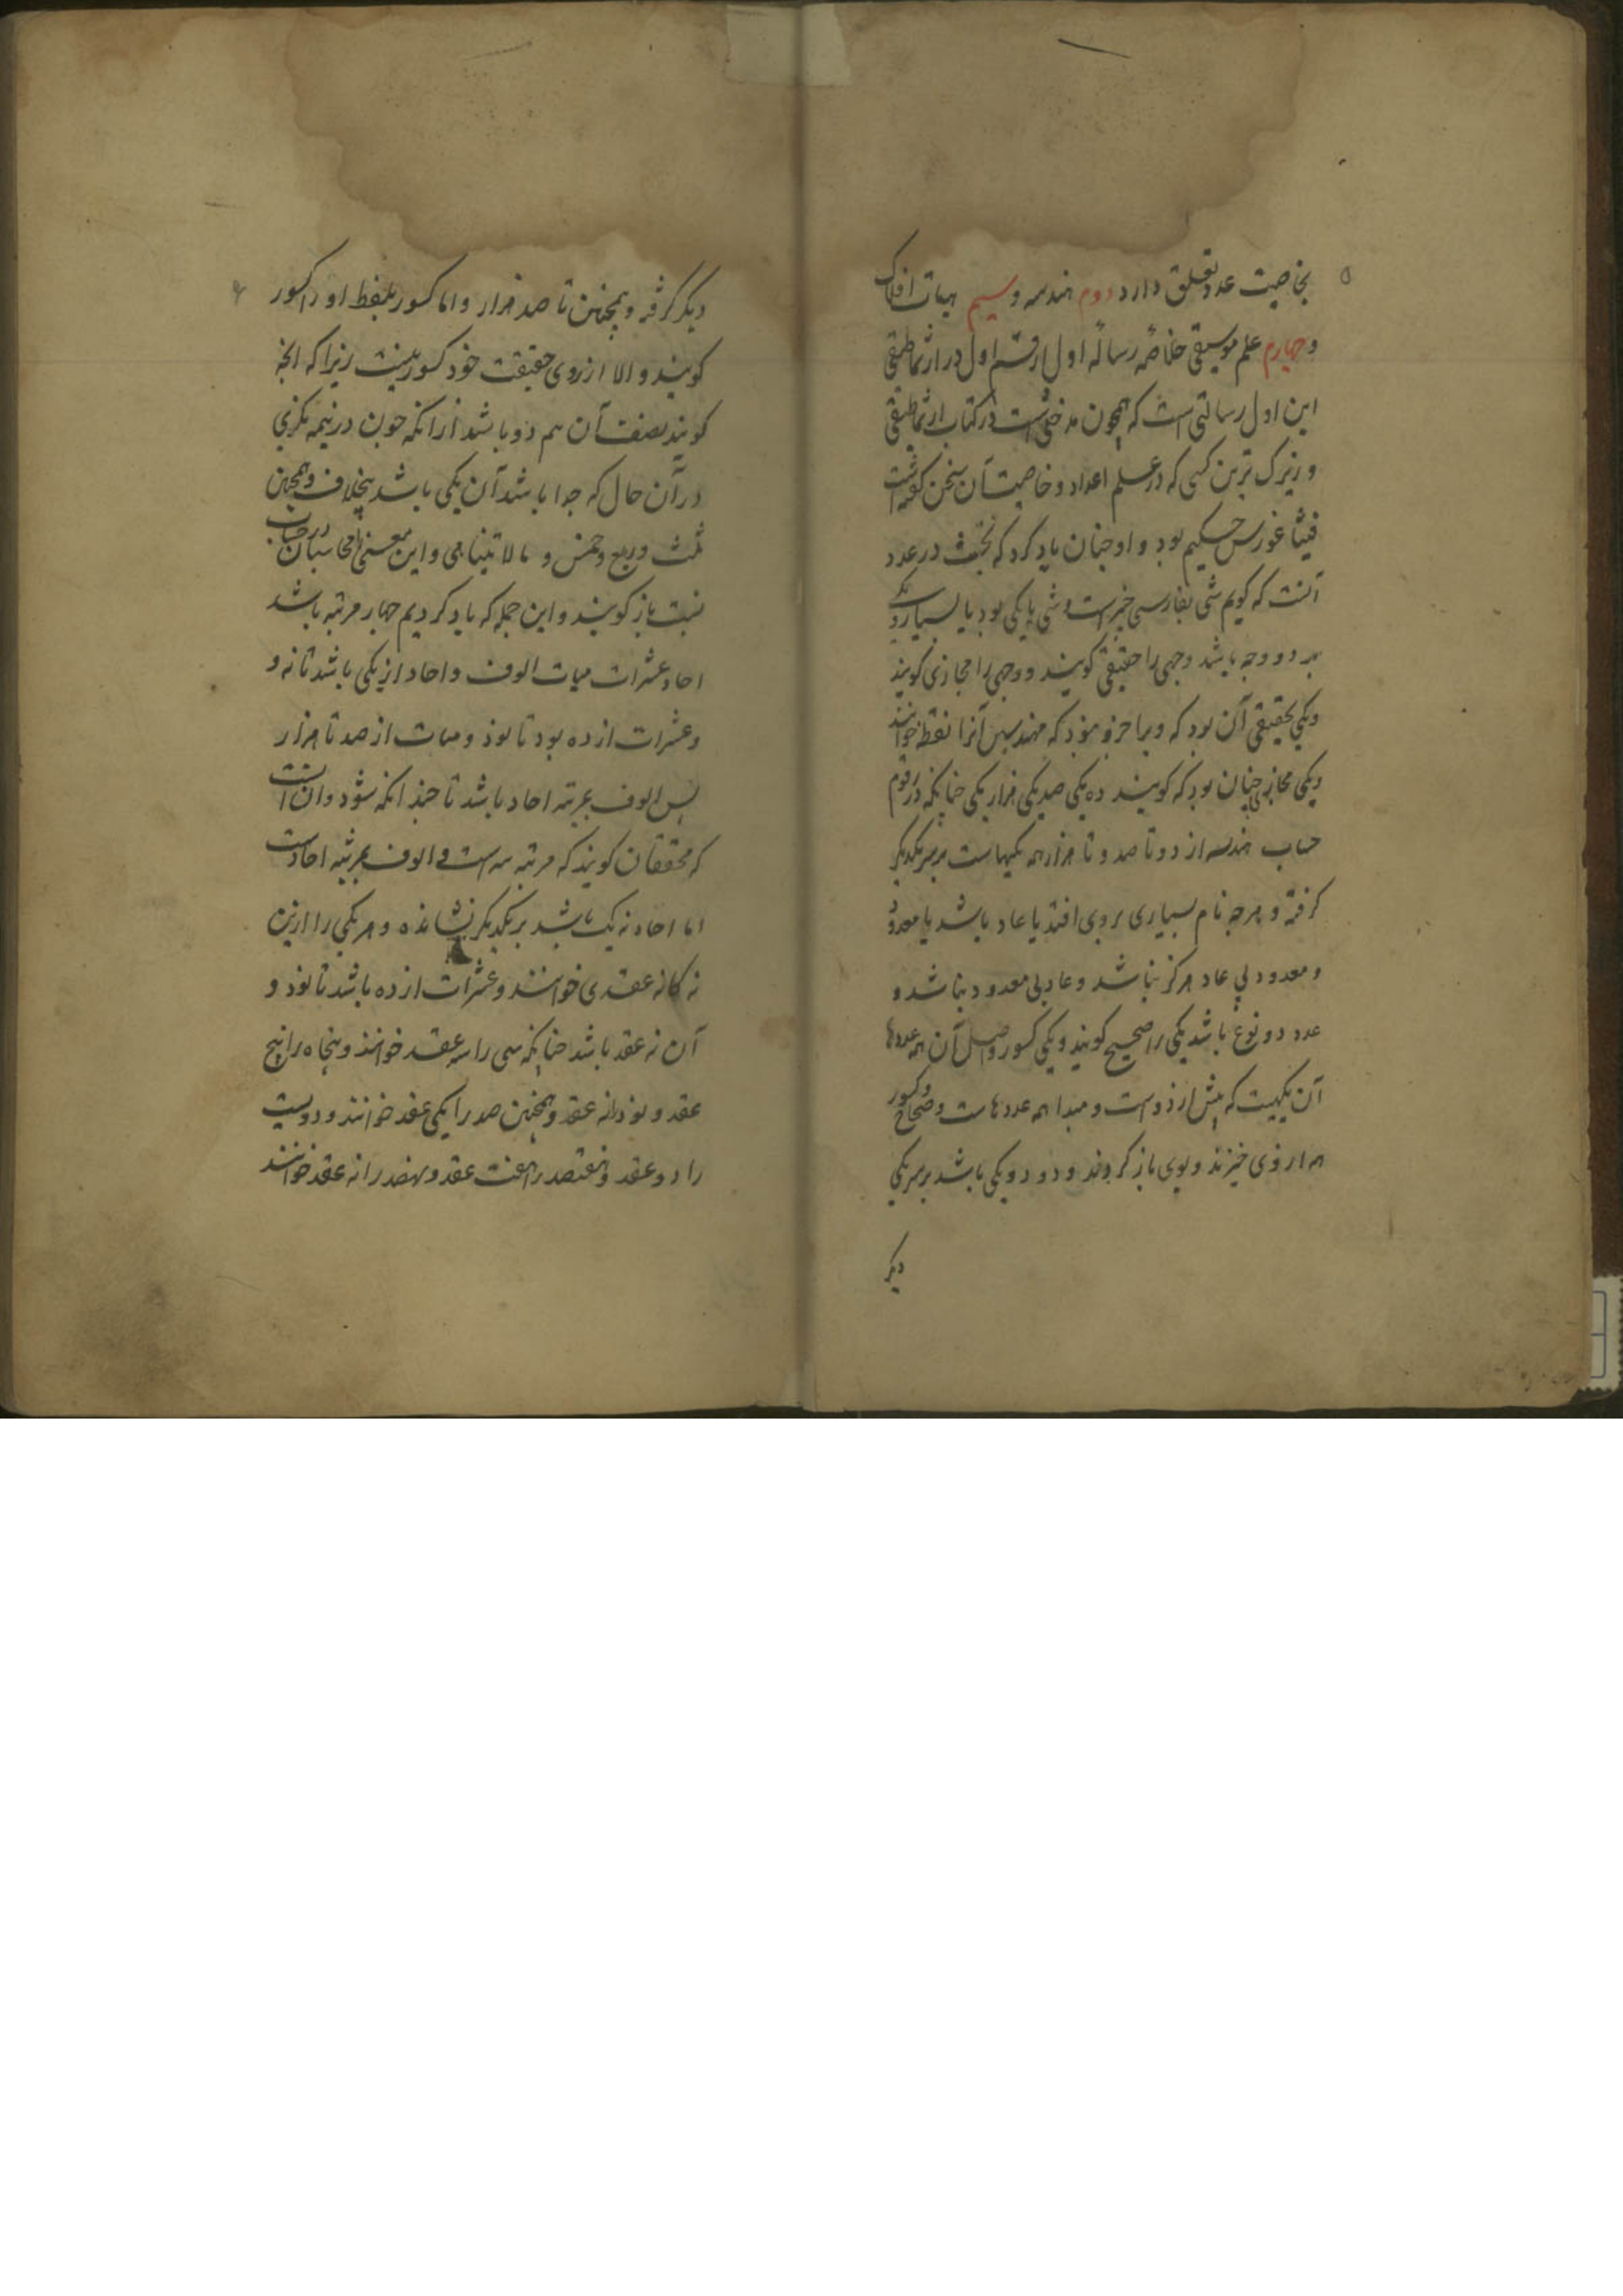 ۵
بخاصیت عدد تعلق دارد دوم هندسه و سیم هیات افلاک
و چهارم علم موسیقی خلاصه رساله اول از قسم اول در ارثماطیقی
این اول رسالتی است که همچون مدخلی است در کتاب ارثماطیقی
و زیرک ترین کسی که در علم اعداد و خاصیت آن سخن گفته است
فیثاغورس حکیم بود و او چنان یاد کرد که نخست در عدد
آنست که گویم شی بفارسی چیز است و شی یا یکی بود یا بسیار و یکی
بر دو وجه باشد وجهی را حقیقی گویند و وجهی را مجازی گویند
و یکی حقیقی آن بود که ویرا جزو نبود که مهندسین آنرا نقطه خوانند
و یکی مجازی چنان بود که گویند ده یکی صد یکی هزار یکی چنانکه در رقوم
حساب هندسه از دو تا صد و تا هزار همه یکیهاست بر سر یکدیگر
گرفته و هرچه نام بسیاری بروی افتد یا عاد باشد یا معدود
و معدود بی عاد هرگز نباشد و عاد بی معدود نباشد و
عدد دو نوع باشد یکی را صحیح گویند و یکی کسور و اصل آن همه عددها
آن یکیست که پیش از دو است و مبدا همه عددهاست و صحاح و کسور
همه از وی خیزند و بوی باز گردند و دو دو یکی باشد بر سر یکی
دیگر
۶
دیگر گرفته و همچنین تا صد هزار و اما کسور بلفظ او را کسور
گویند و الا از روی حقیقت خود کسور نیست زیرا که آنچه
گویند نصف آن هم دو باشد ازانکه چون در نیمه نگری
در آن حال که جدا باشد آن یکی باشد بخلاف و همچنین
ثلث و ربع و خمس و مالا تیناهی و این معنی را محاسبان در حساب
نسبت باز گویند و این جمله که یاد کردیم چهار مرتبه باشد
احاد عشرات میات الوف و احاد از یکی باشد تا نه و
و عشرات از ده بود تا نود و میات از صد تا هزار
پس الوف بمرتبه احاد باشد تا چندانکه شود و آن است
که محققان گویند که مرتبه سه است و الوف بمرتبه احادست
اما احاد نه یک باشد بر یکدیگر نشانده و هر یکی را ازین
نه گانه عقدی خوانند و عشرات از ده باشد تا نود و
آن نه عقد باشد چنانکه سی را سه عقد خوانند و پنجاه را پنج
عقد و نود را نه عقد و همچنین صد را یکی عقد خوانند و دویست
را دو عقد و هفتصد را هفت عقد و نهصد را نه عقد خوانند